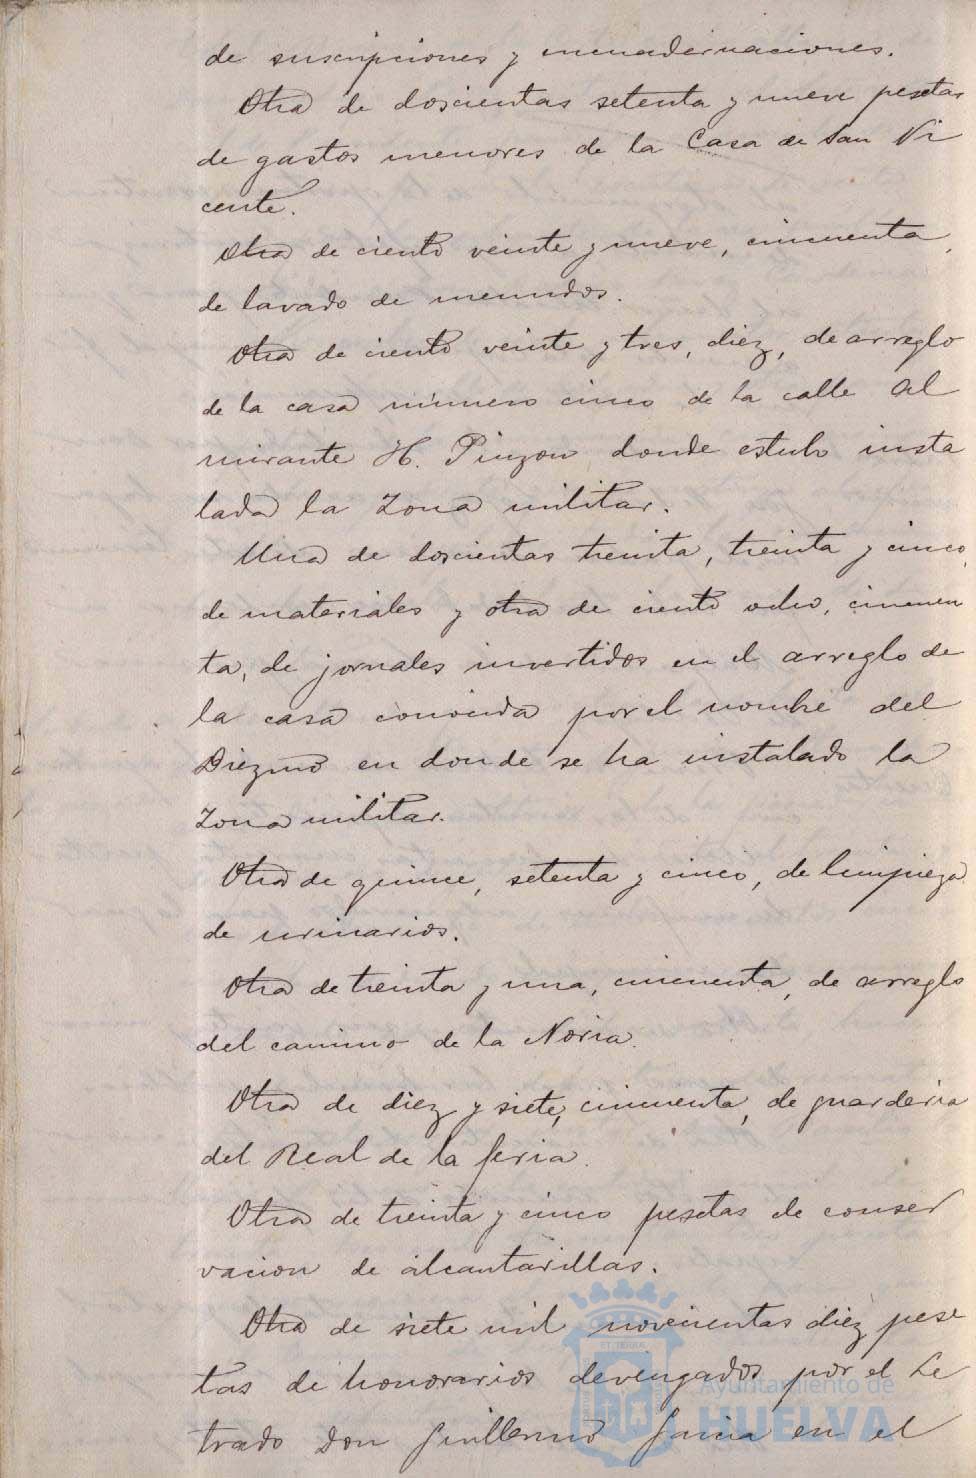 de suscripciones y encuadernaciones.
Otra de doscientas setenta y nueve pesetas
de gastos menores de la Casa de San Vi
cente.
Otra de ciento veinte y nueve, cincuenta,
de lavado de menudos.
Otra de ciento veinte y tres, diez, de arreglo
de la casa número cinco de la calle Al
mirante H. Pinzon donde estubo insta
lada la Zona militar.
Una de doscientas treinta, treinta y cinco,
de materiales y otra de ciento ocho, cincuen
ta, de jornales invertidos en el arreglo de
la casa conocida por el nombre del
Diezmo en donde se ha instalado la
Zona militar.
Otra de quince, setenta y cinco, de limpieza
de urinarios.
Otra de treinta y una, cincuenta, de arreglo
del camino de la Noria.
Otra de diez y siete, cincuenta, de guarderia
del Real de la feria.
Otra de treinta y cinco pesetas de conser
vacion de alcantarillas.
Otra de siete mil novecientas diez pese
tas de honorarios devengados por el Le
trado Don Guillermo Garcia en el
Ayuntamiento de
HUELVA